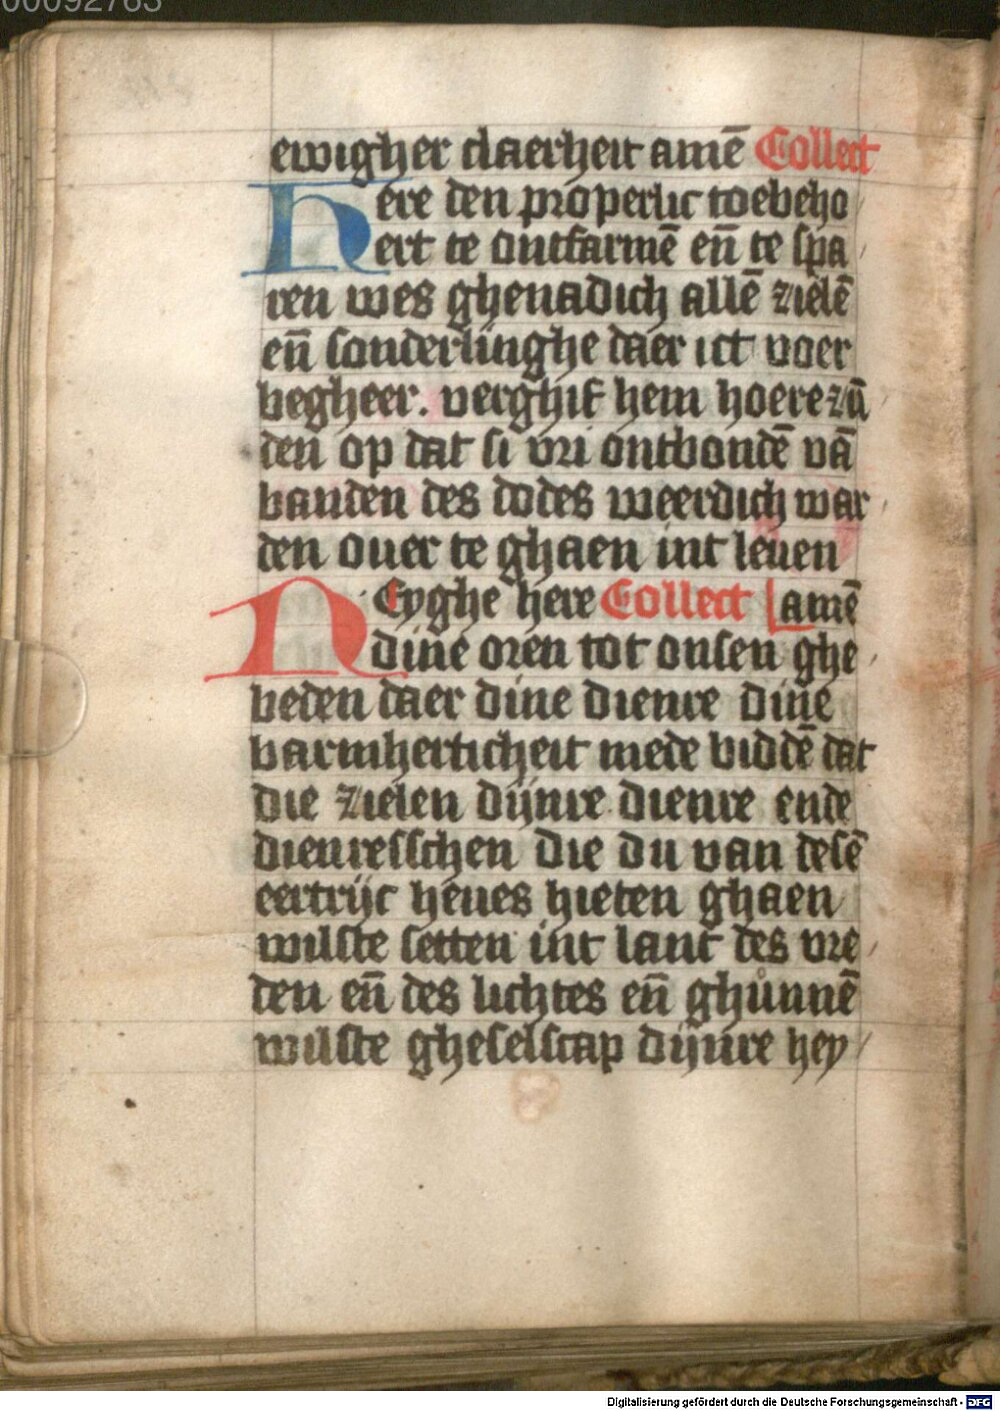 00092763
ewigher claerheit amē Collect
Here den properlic toebeho
ert te ontfarmē en̄ te spa
ren wes ghenadich allē zielē
en̄ sonderlinghe daer ict voer
begheer. verghif hem hoere zū
den op dat si vri ontbondē vā
banden des dodes weerdich war
den ouer te ghaen int leuen
Neyghe here Collect [amē
dine oren tot onsen ghe
beden daer dine dienre dine
barmherticheit mede biddē dat
die zielen dijnre dienre ende
dienresschen die du van desē
eertrijc heues hieten ghaen
wilste setten int lant des vre
den en̄ des lichtes en̄ ghůnnē
wilste gheselscap dijnre hey
Digitalisierung gefördert durch die Deutsche Forschungsgemeinschaft - DFG